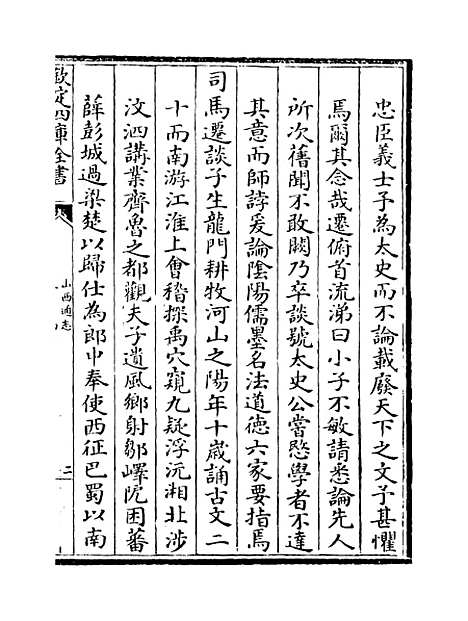 忠臣義士予為太史而不論載廢天下之文予甚懼
焉爾其念哉遷俯首流涕曰小子不敏請悉論先人
所次舊聞不敢闕乃卒談號太史公嘗愍學者不達
其意而師誖爰論陰陽儒墨名法道德六家要指焉
司馬遷談子生龍門耕牧河山之陽年十歲誦古文二
十而南游江淮上會稽探禹穴窺九疑浮沅湘北涉
汶泗講業齊魯之都觀夫子遺風鄉射鄒嶧阨困蕃
薛彭城過梁楚以歸仕為郎中奉使西征巴蜀以南
欽定四庫全書
山西通志
二